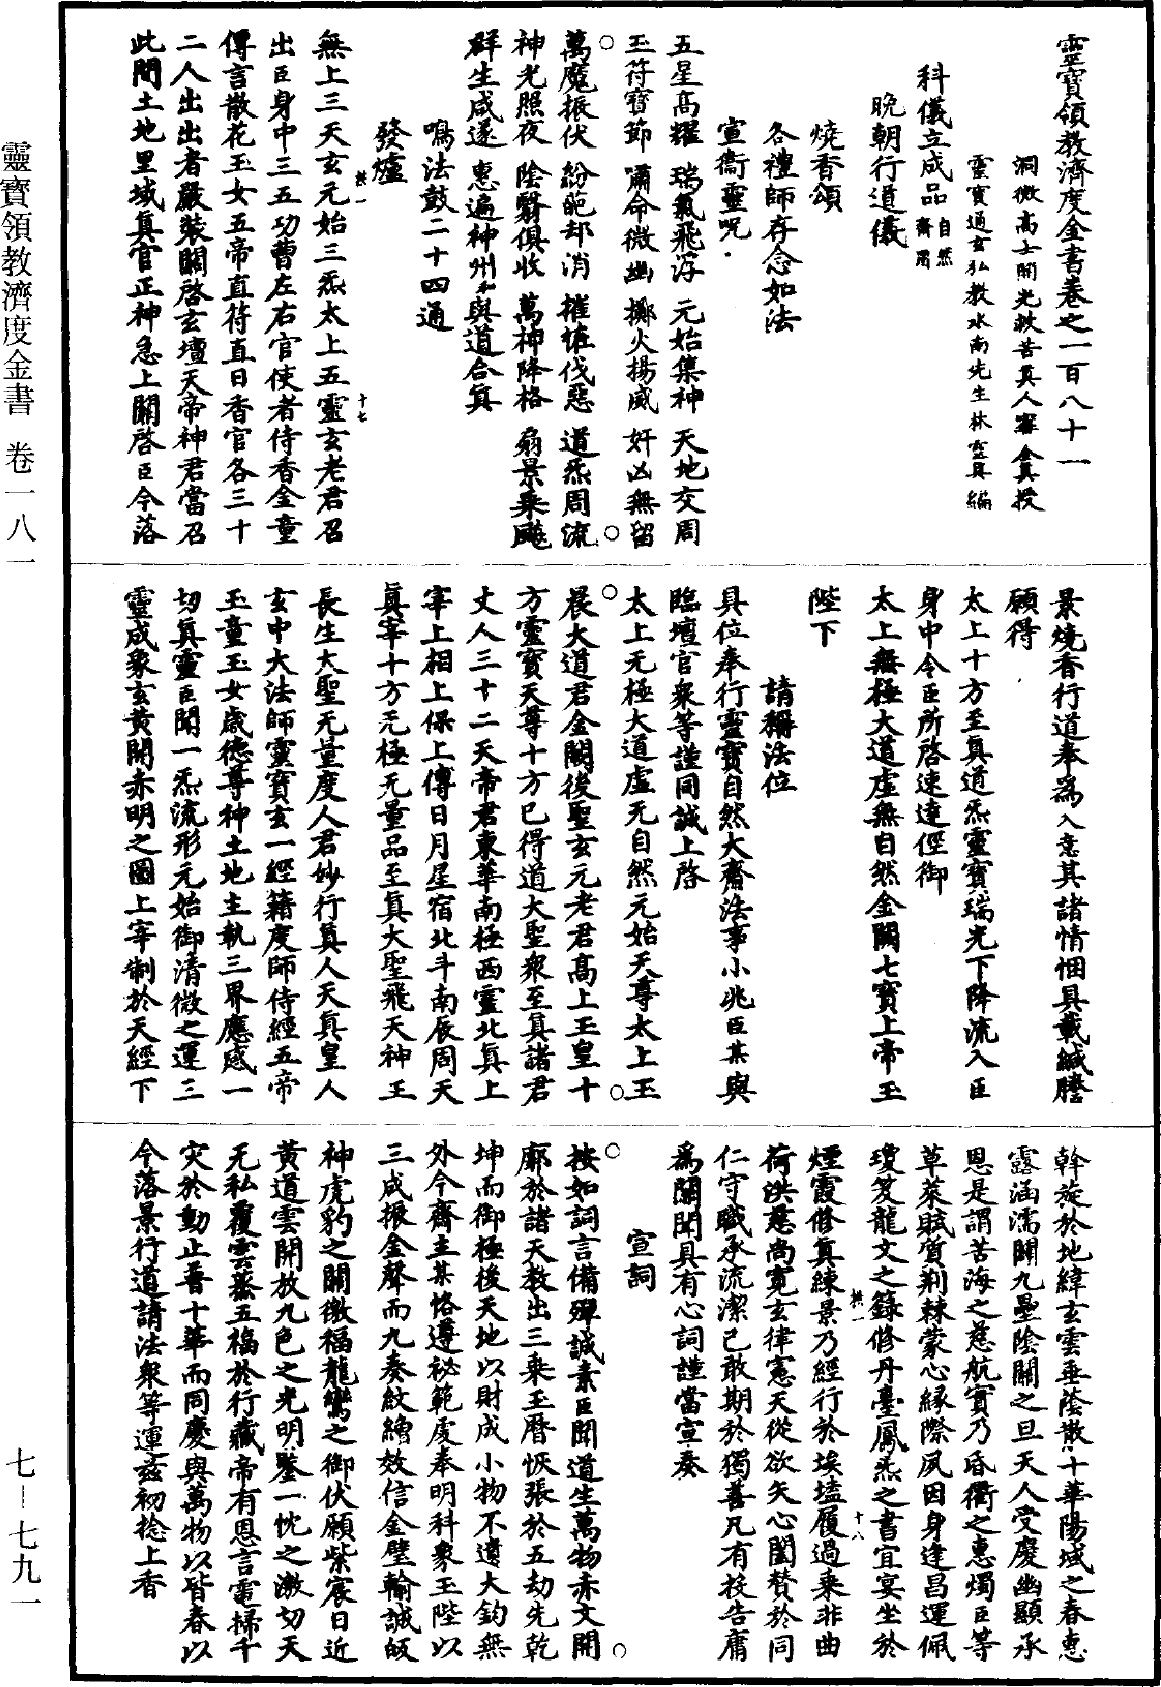 靈寶領教濟度金書卷之一百八十一
洞微高士開光救苦真人寗全真授
靈寶通玄弘教水南先生林靈真編
科儀立成品自然齋用
晚朝行道儀
燒香頌
各禮師存念如法
宣衞靈呪
五星高耀 瑞氣飛浮 元始集神 天地交周
玉符寶節 嘯命微幽 擲火揚威 奸凶無留
萬魔振伏 紛葩却消 摧馘伐惡 道炁周流
神光照夜 陰翳俱收 萬神降格 扇景乘飈
群生咸遂 惠遍神州 和與道合真
鳴法鼓二十四通
發爐
無上三天玄元始三炁太上五靈玄老君召
出臣身中三五功曹左右官使者侍香金童
傳言散花玉女五帝直符直日香官各三十
二人出出者嚴裝關啓玄壇天帝神君當召
此間土地里域真官正神急上關啓臣今落
景燒香行道奉爲入意其諸情悃具載緘謄
願得
太上十方至真道炁靈寶瑞光下降流入臣
身中令臣所啓速達徑御
太上無極大道虛無自然金闕七寶上帝玉
陛下
請稱法位
具位奉行靈寶自然大齋法事小兆臣某與
臨壇官衆等謹同誠上啓
太上无極大道虛无自然元始天尊太上玉
晨大道君金闕後聖玄元老君高上玉皇十
方靈寶天尊十方已得道大聖衆至真諸君
丈人三十二天帝君東華南極西靈北真上
宰上相上保上傅日月星宿北斗南辰周天
真宰十方无極无量品至真大聖飛天神王
長生大聖无量度人君妙行真人天真皇人
玄中大法師靈寶玄一經籍度師侍經五帝
玉童玉女歲德尊神土地主執三界應感一
切真靈臣聞一炁流形元始御清微之運三
靈成象玄黃開赤明之圖上宰制於天經下
幹旋於地緯玄雲垂蔭散十華陽域之春惠
露涵濡闢九壘陰關之旦天人受慶幽顯承
恩是謂苦海之慈航實乃昏衢之惠燭臣等
草萊賦質荊棘蒙心緣際夙因身逢昌運佩
瓊笈龍文之籙修丹臺鳳炁之書宜宴坐於
煙霞修真練景乃經行於埃壒履過乘非曲
荷洪慈尚寬玄律憲天從欲矢心闡贊於同
仁守職承流潔己敢期於獨善凡有投告庸
爲關聞具有心詞謹當宣奏
宣詞
按如詞言備殫誠素臣聞道生萬物赤文開
廓於諸天教出三乘玉曆恢張於五劫先乾
坤而御極後天地以財成小物不遺大鈞無
外今齋主某恪遵祕範虔奉明科象王陛以
三成振金聲而九奏紋繒效信金璧輸誠皈
神虎豹之關徼福龍鸞之御伏願紫宸日近
黃道雲開放九色之光明鑒一忱之激切天
无私覆雲蒸五福於行藏帝有恩言電掃千
灾於動止普十華而同慶與萬物以皆春以
今落景行道請法衆等運茲初捻上香
靈寶領教濟度金書 卷一八一
七—七九一